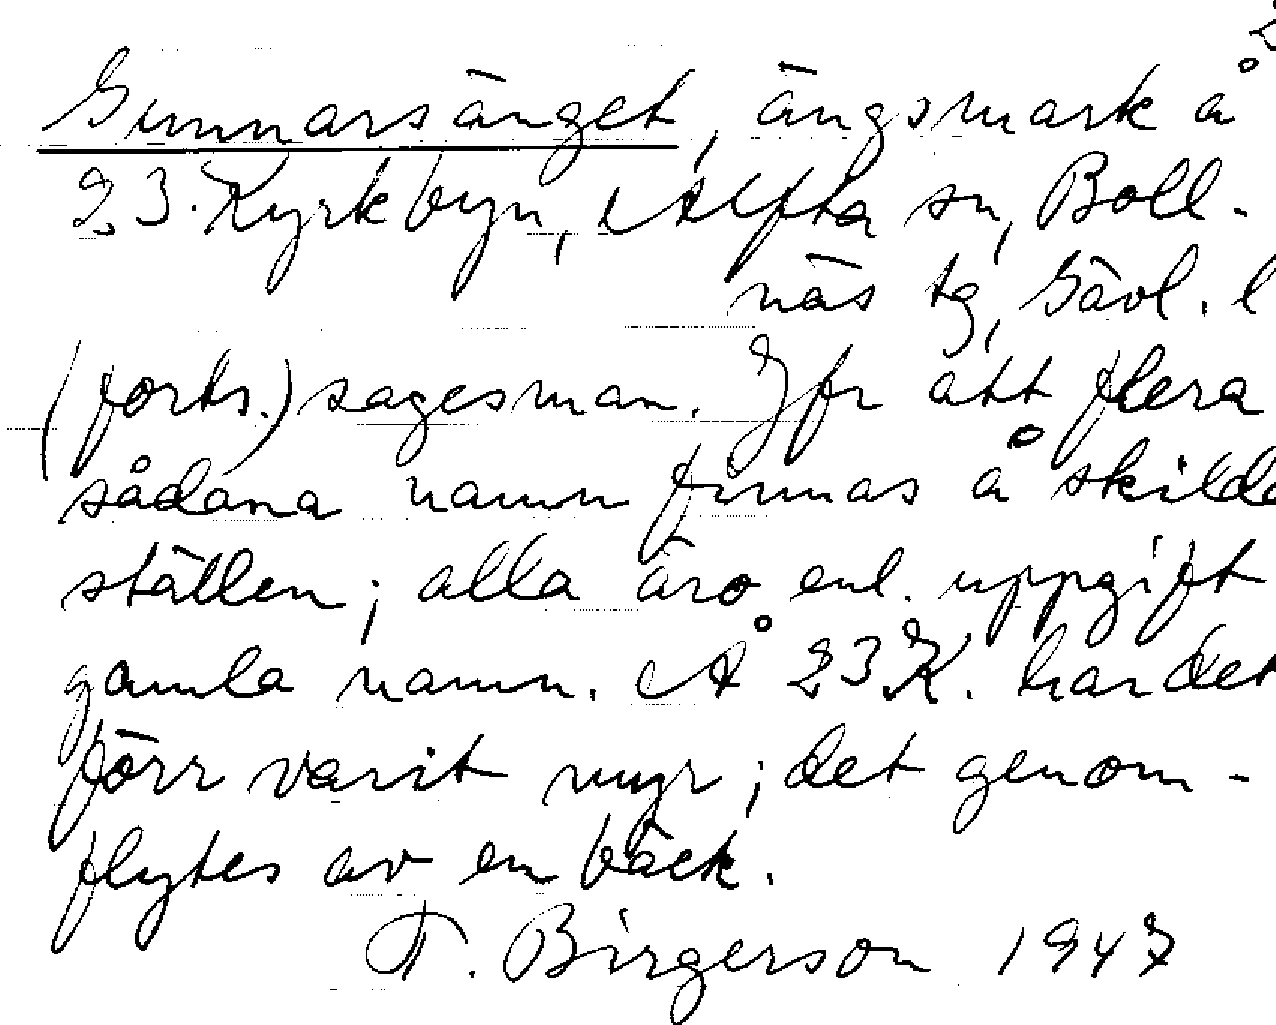 2
Gunnarsänget, ängsmark å
23. Kyrkbyn, Alfta sn, Boll-
näs tg, Gävl. l
(forts.) sagesman. Jfr att flera
sådana namn finnas å skilda
ställen; alla äro enl. uppgift
gamla namn. Å 23 K. har det
förr varit myr; det genom-
flytes av en bäck.
F. Birgerson 1947